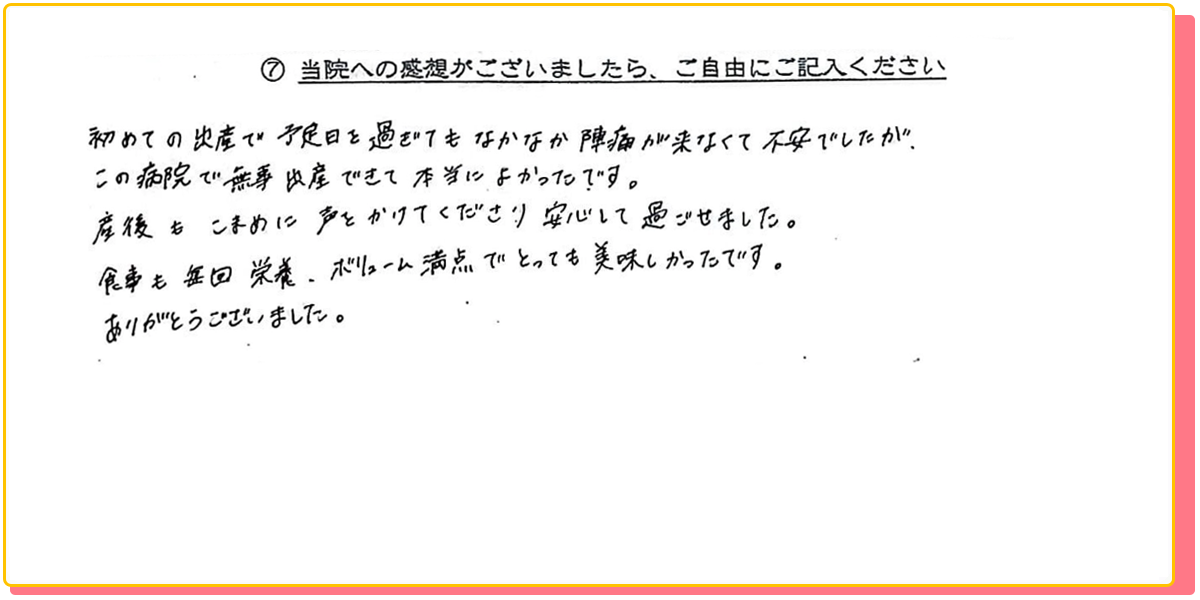 ⑦ 当院への感想がございましたら、ご自由にご記入ください
初めての出産で予定日を過ぎてもなかなか陣痛が来なくて不安でしたが、
この病院で無事出産できて本当によかったです。
産後もこまめに声をかけてくださり安心して過ごせました。
食事も毎回栄養、ボリューム満点でとっても美味しかったです。
ありがとうございました。